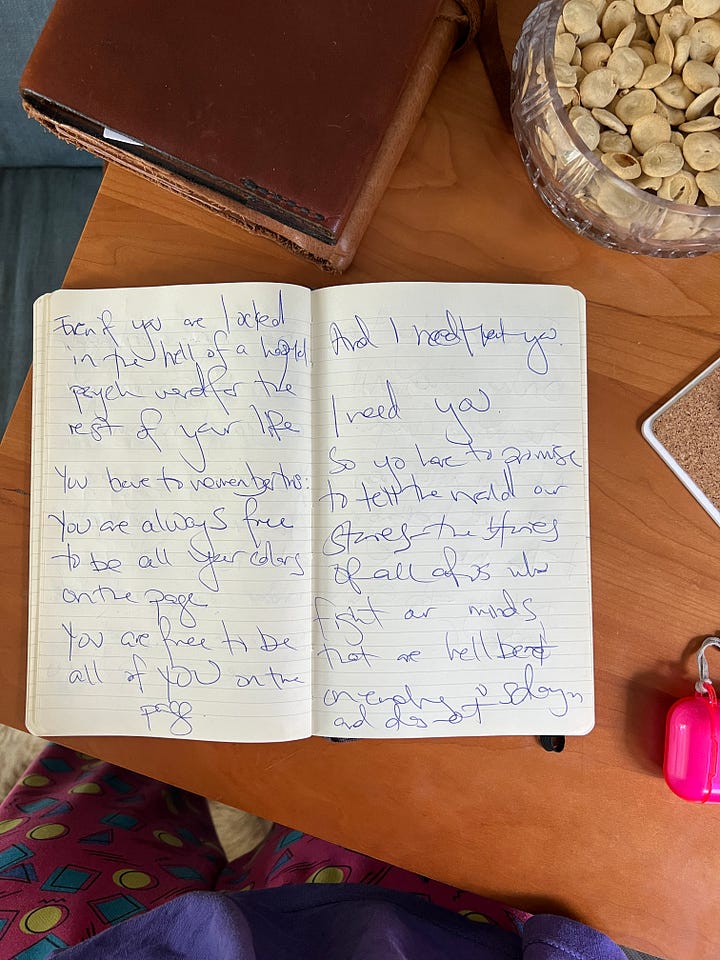 Even if you are locked
in the hell of a
psych ward for the
rest of your life
You have to remember this:
You are always free
to be all your colors
on the page
You are free to be
all of YOU on the
page.
And I need that you.
I need you.
So yo have to promise
to tell the world our
stories - the stories
of all of us who
fight our minds
that are hellbent
on
and